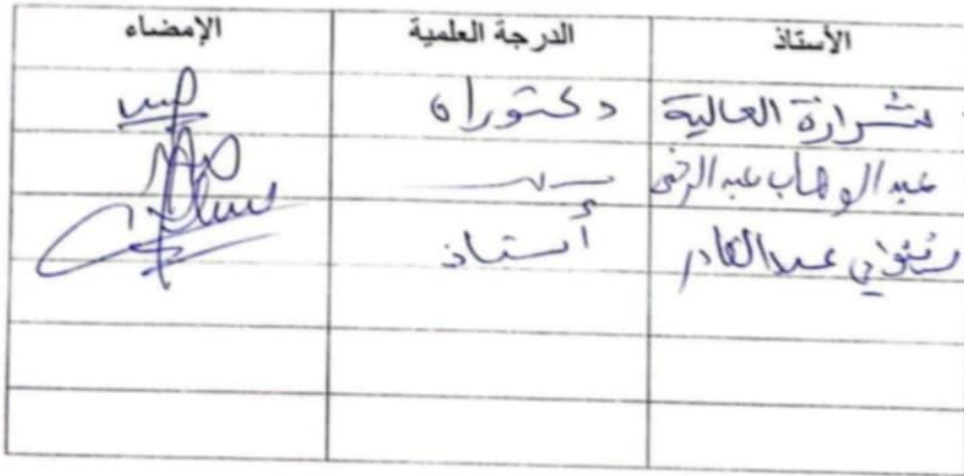 الأستاذ الدرجة العلمية الإمضاء
شرارة العالية دكتوراه
عبد الوهاب عبد الرحمن
عبد القادر أستاذ